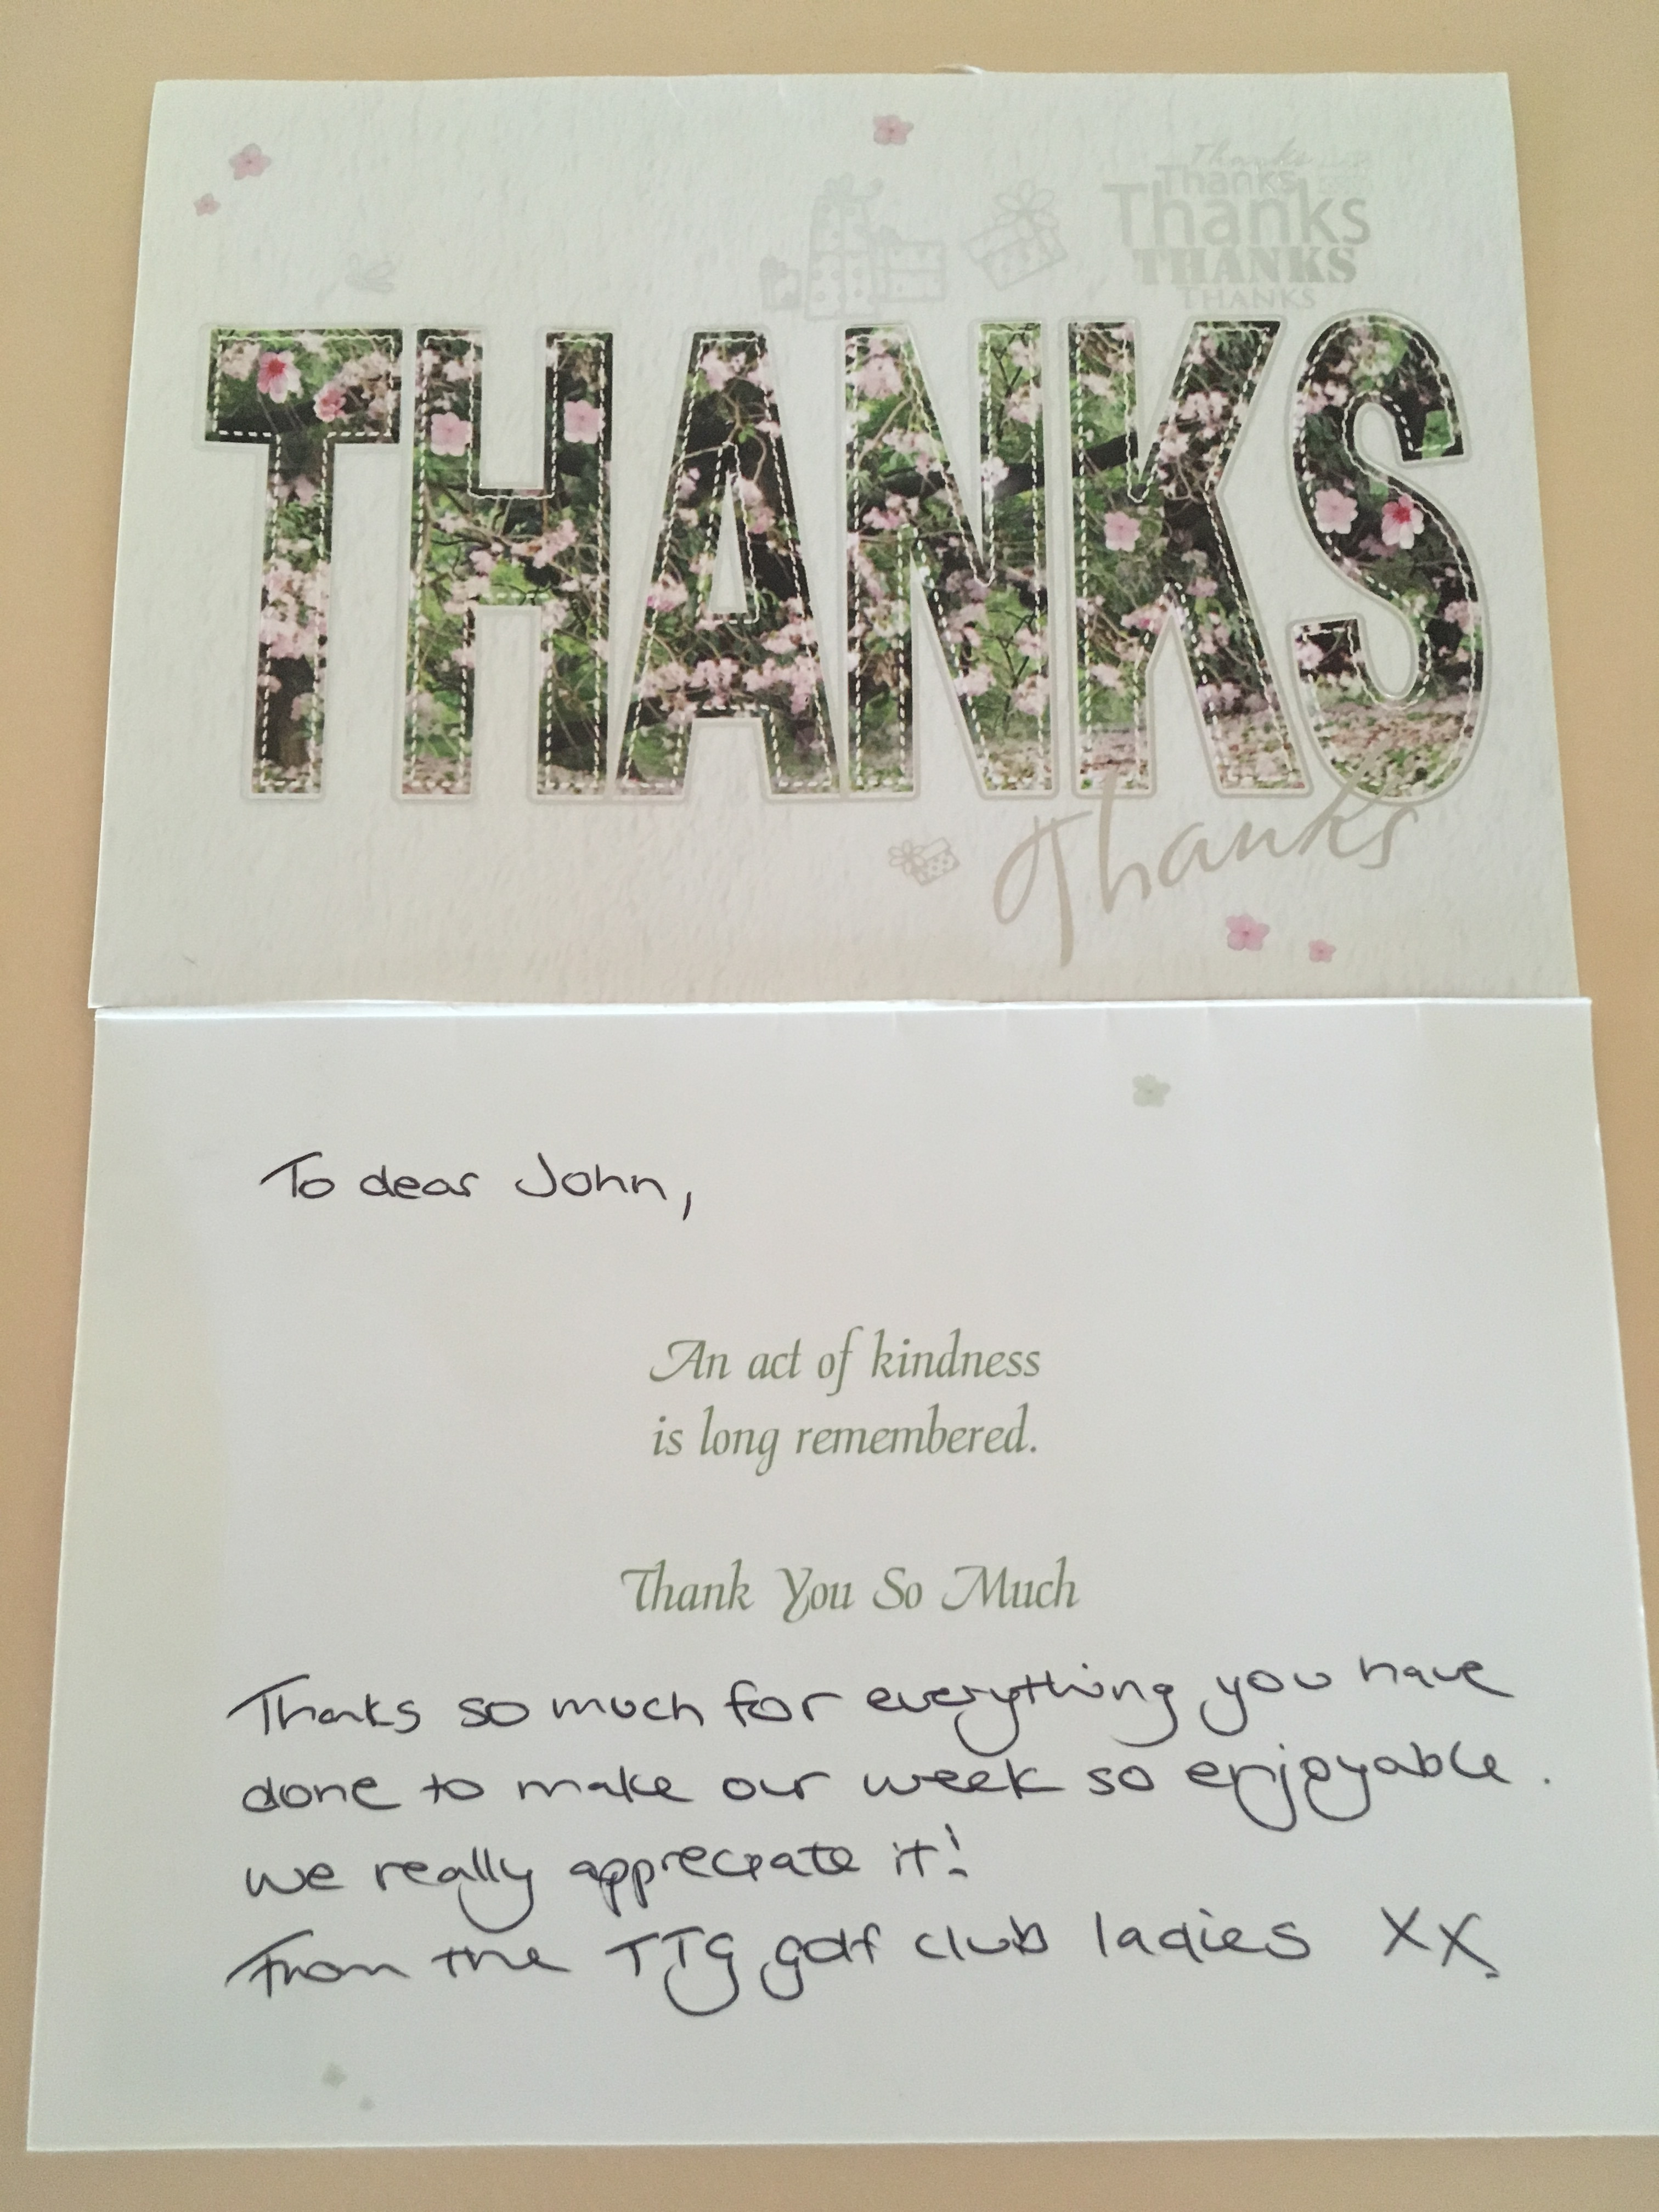 Thanks
Thanks
Thanks
THANKS
THANKS
THANKS
Thanks
To dear John,
An act of kindness
is long remembered.
Thank You So Much
Thanks so much for everything you have
done to make our week so enjoyable.
we really appreciate it!
From the TTG golf club ladies XX